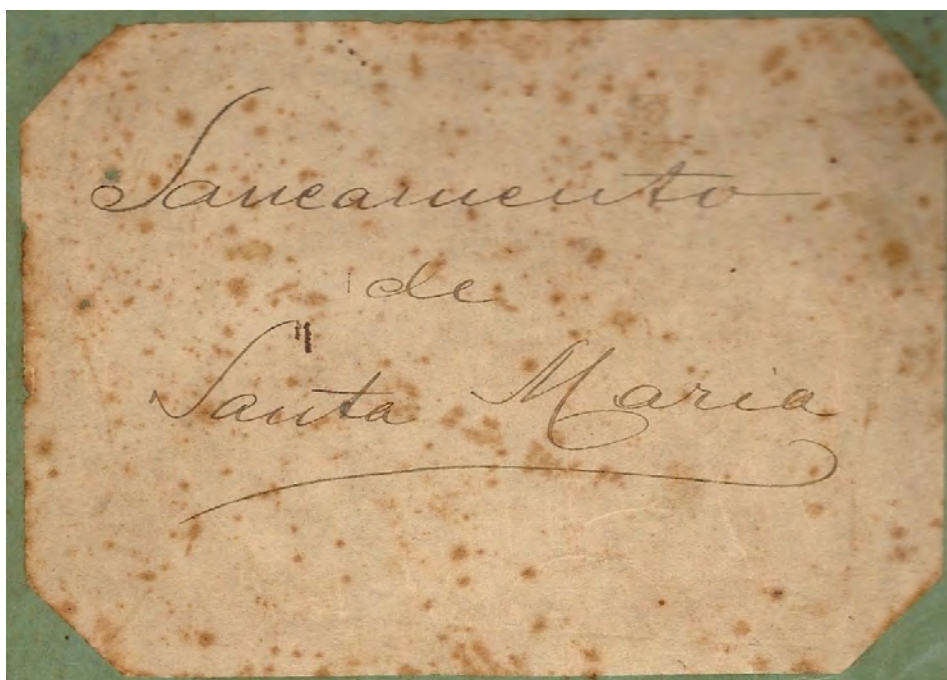 Saneamento
de
Santa Maria